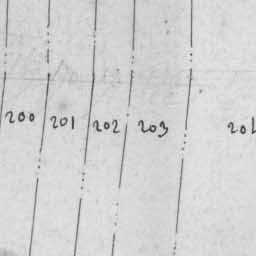 200 201 202 203